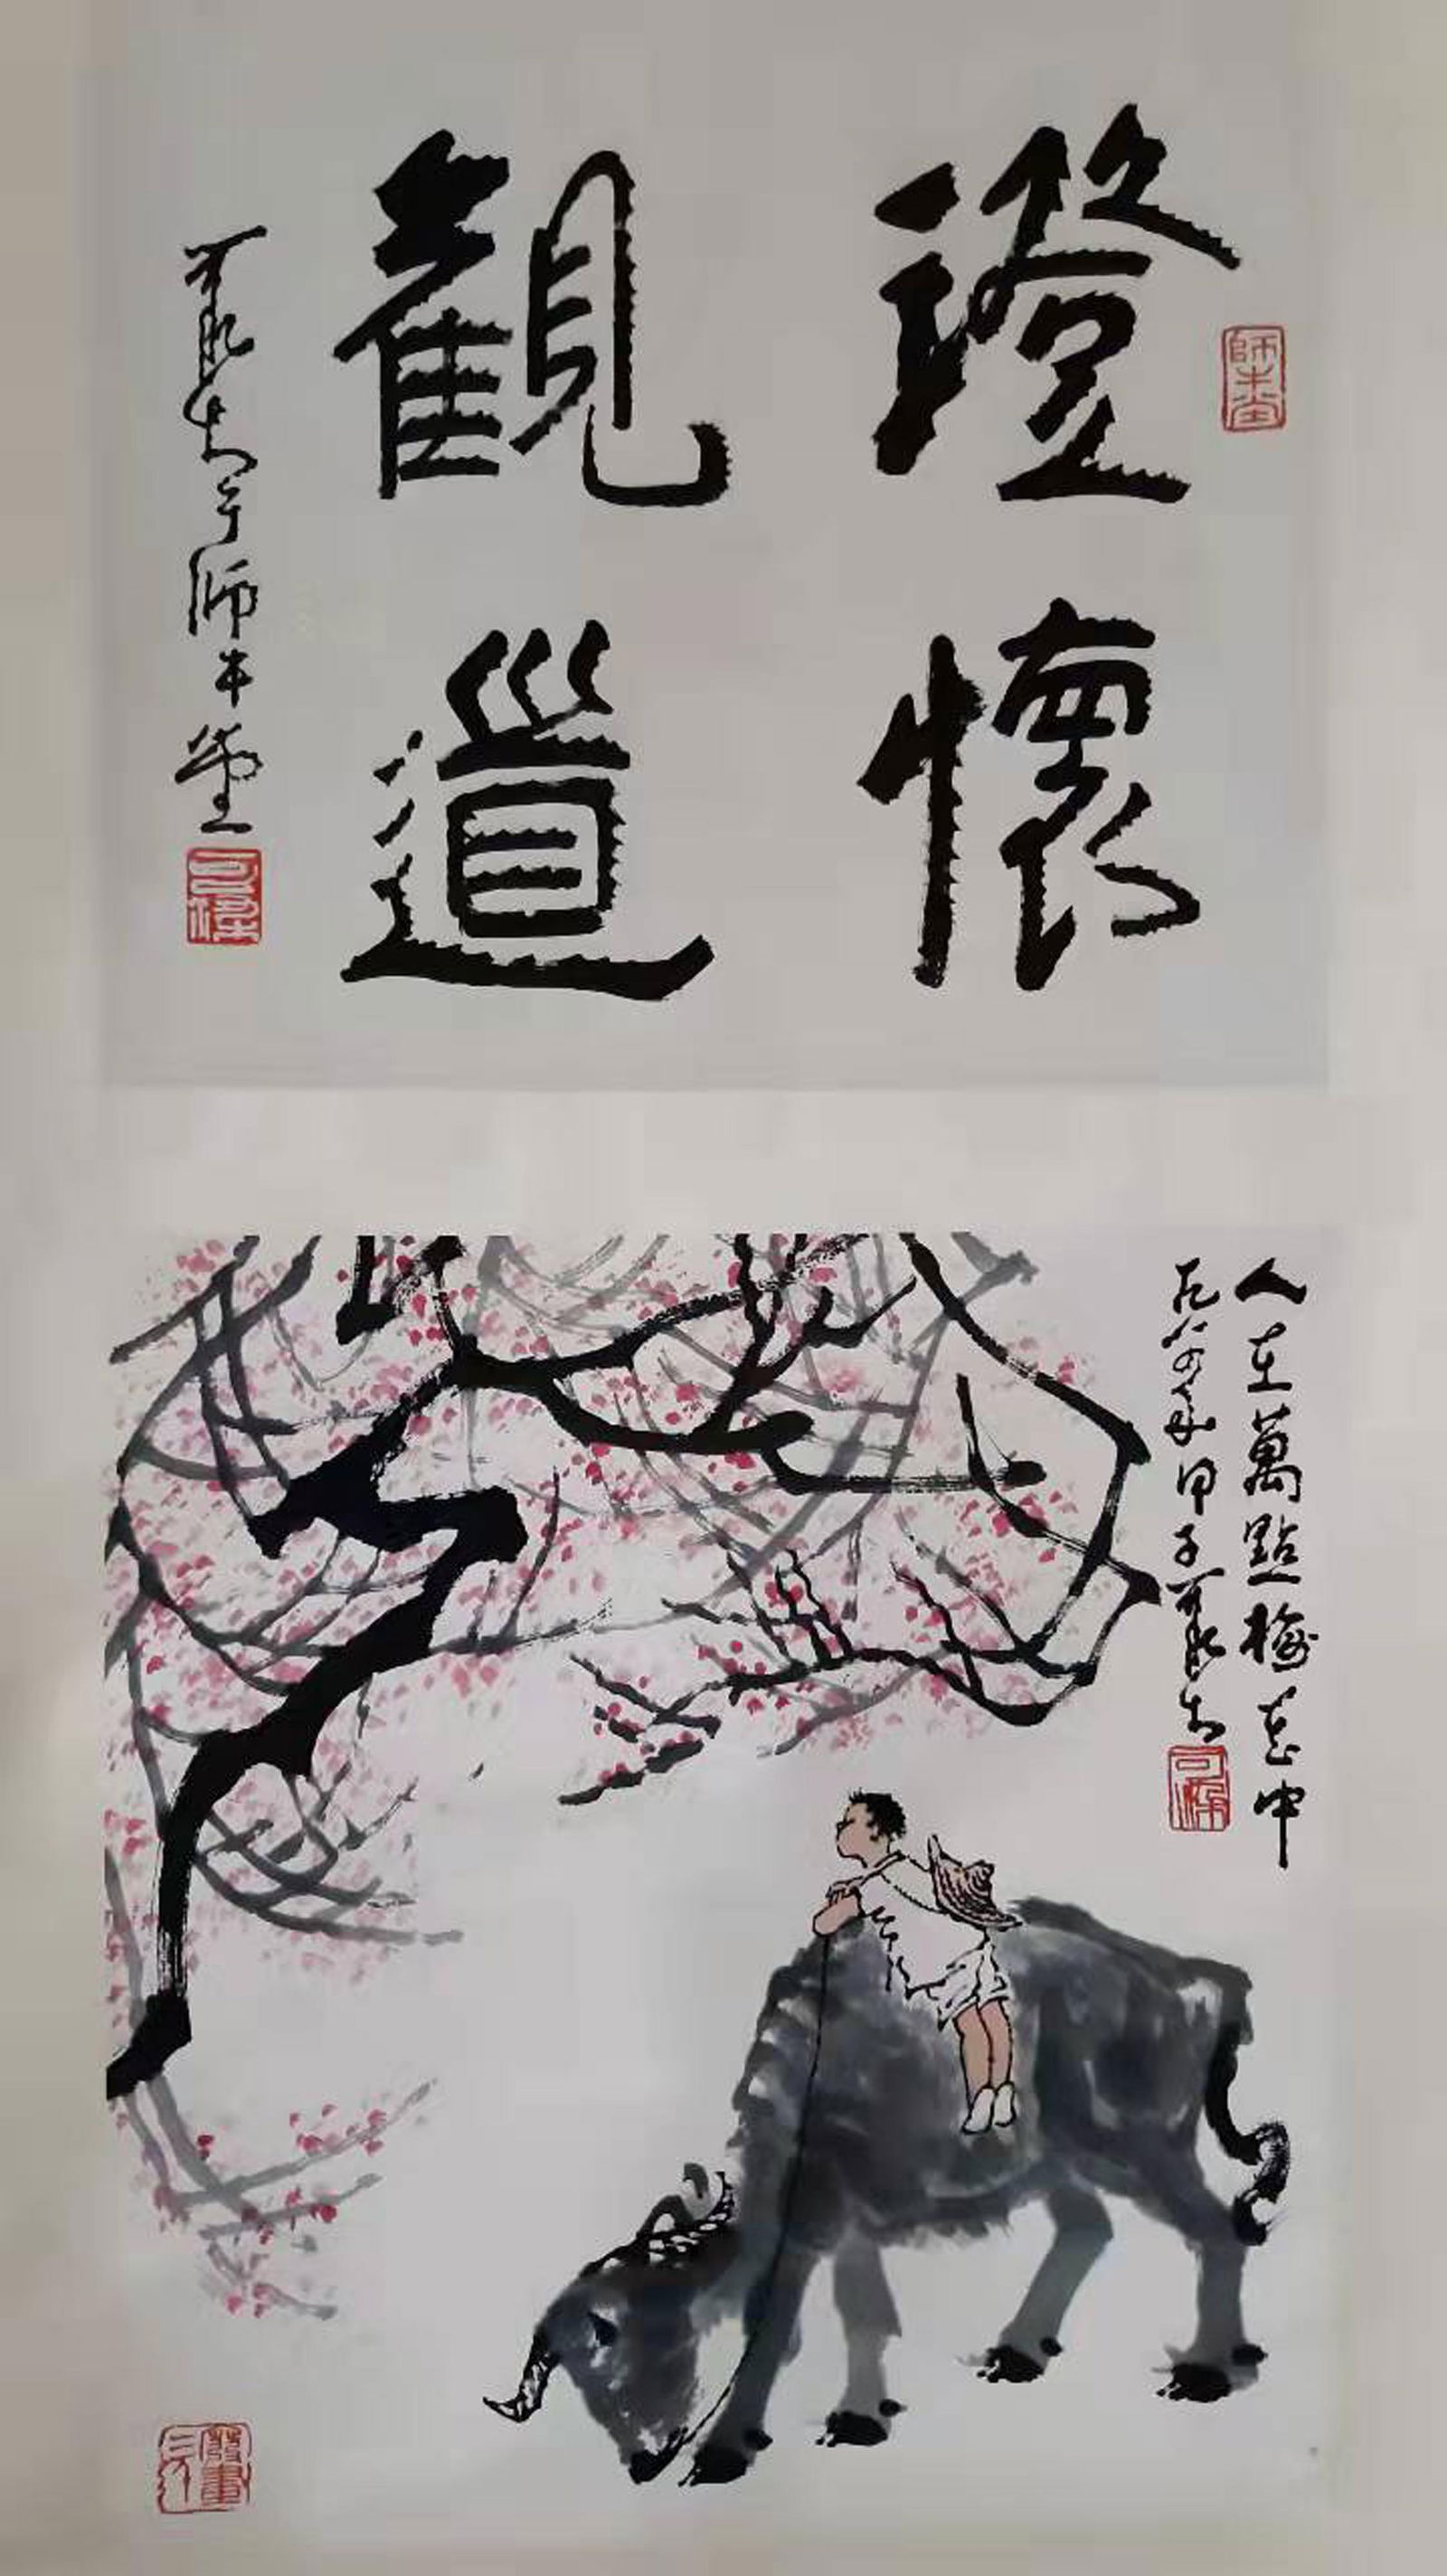 師牛堂
澄懷
觀道
可染于師牛堂
可染
人在萬點梅花中
一九八四年甲子可染
可染
廢畫三千